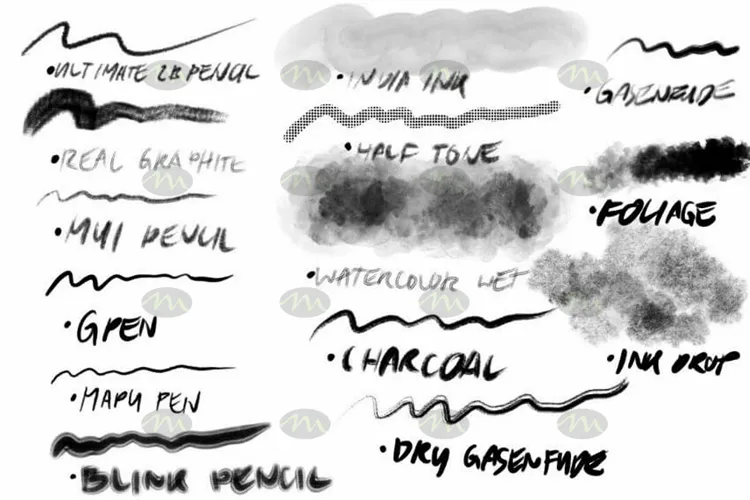 •ULTIMATE 2B PENCIL
•REAL GRAPHITE
•MYI PENCIL
•GPEN
•MAPU PEN
•BLINK PENCIL
•INDIA INK
•HALF TONE
•WATERCOLOR WET
•CHARCOAL
•DRY GASENFUDE
•GASENFUDE
•FOLIAGE
•INK DROP